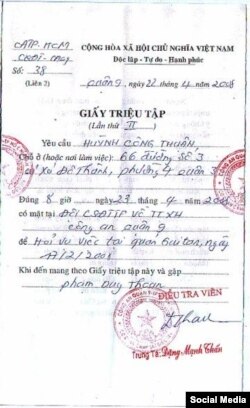 CATP. HCM
CỘNG HÒA XÃ HỘI CHỦ NGHĨA VIỆT NAM
Độc lập - Tự do - Hạnh phúc
Số: 38
(Liên 2)
quận 9, ngày 22 tháng 4 năm 2008
GIẤY TRIỆU TẬP
(Lần thứ II)
Yêu cầu HUỲNH CÔNG THUẬN
Chỗ ở (hoặc nơi làm việc): 66 đường Số 3
cư Xá Đô Thành, phường 4 quận 3
Đúng 8 giờ ngày 23 tháng 4 năm 2008
có mặt tại ĐỘI CSĐTTP VỀ TTXH
công an quận 9
để Hỏi vụ việc tại quán ngày
/2/2008
Khi đến mang theo Giấy triệu tập này và gặp
phạm Duy Thoan
ĐIỀU TRA VIÊN
Trung Tá: Đặng Mạnh Chấn
Social Media